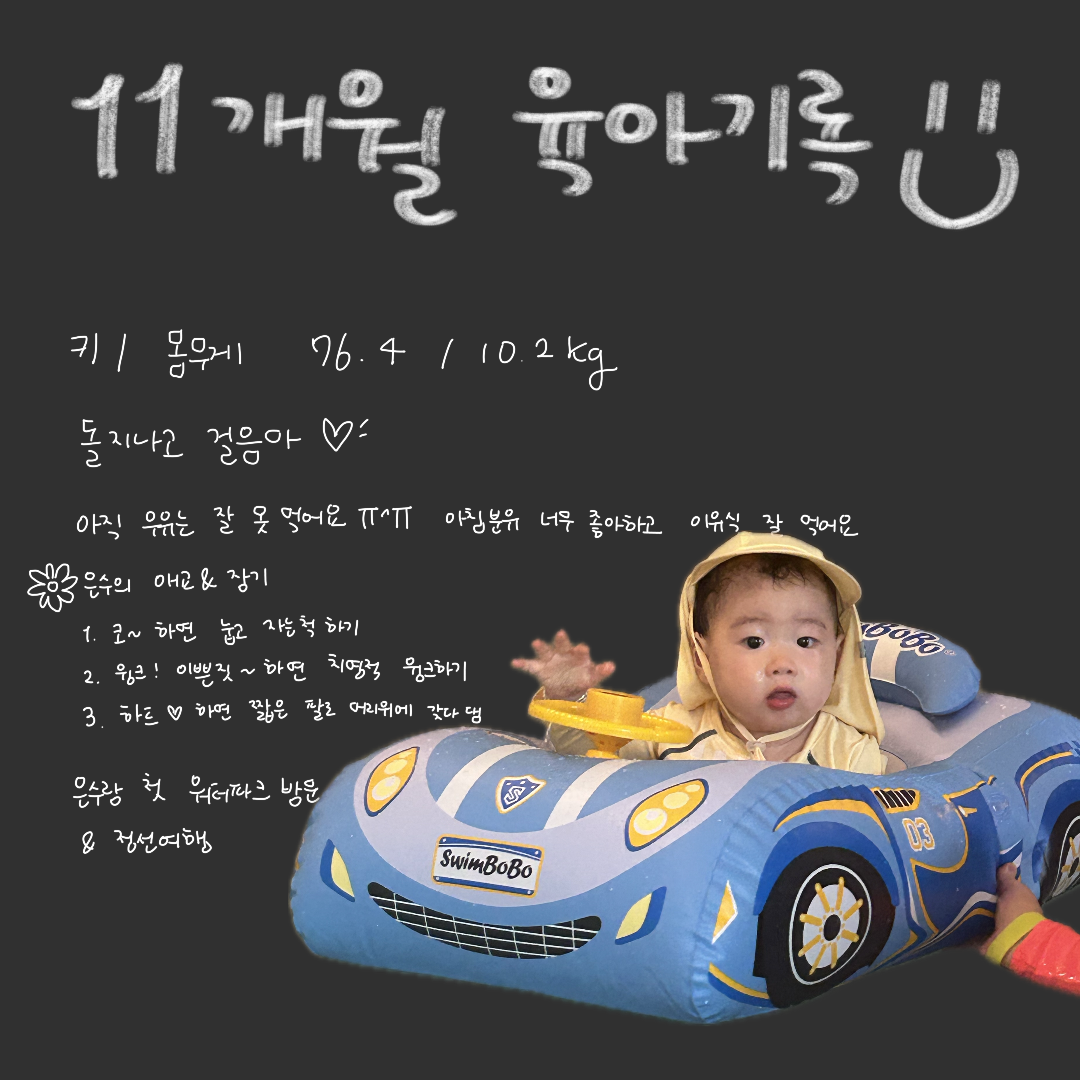 11개월 육아기록
키 / 몸무게 76.4 / 10.2kg
돌지나고 걸음마 ♡
아직 우유는 잘 못 먹어요 ㅠ^ㅠ 아침분유 너무 좋아하고 이유식 잘 먹어요
은수의 애교 & 장기
1. 코~ 하면 눕고 자는척 하기
2. 윙크! 이쁜짓~하면 치명적 윙크하기
3. 하트 ♡ 하면 짧은 팔로 머리위에 갖다 댐
은수랑 첫 워터파크 방문
& 정선여행
BoBo
S
SwimBoBo
03